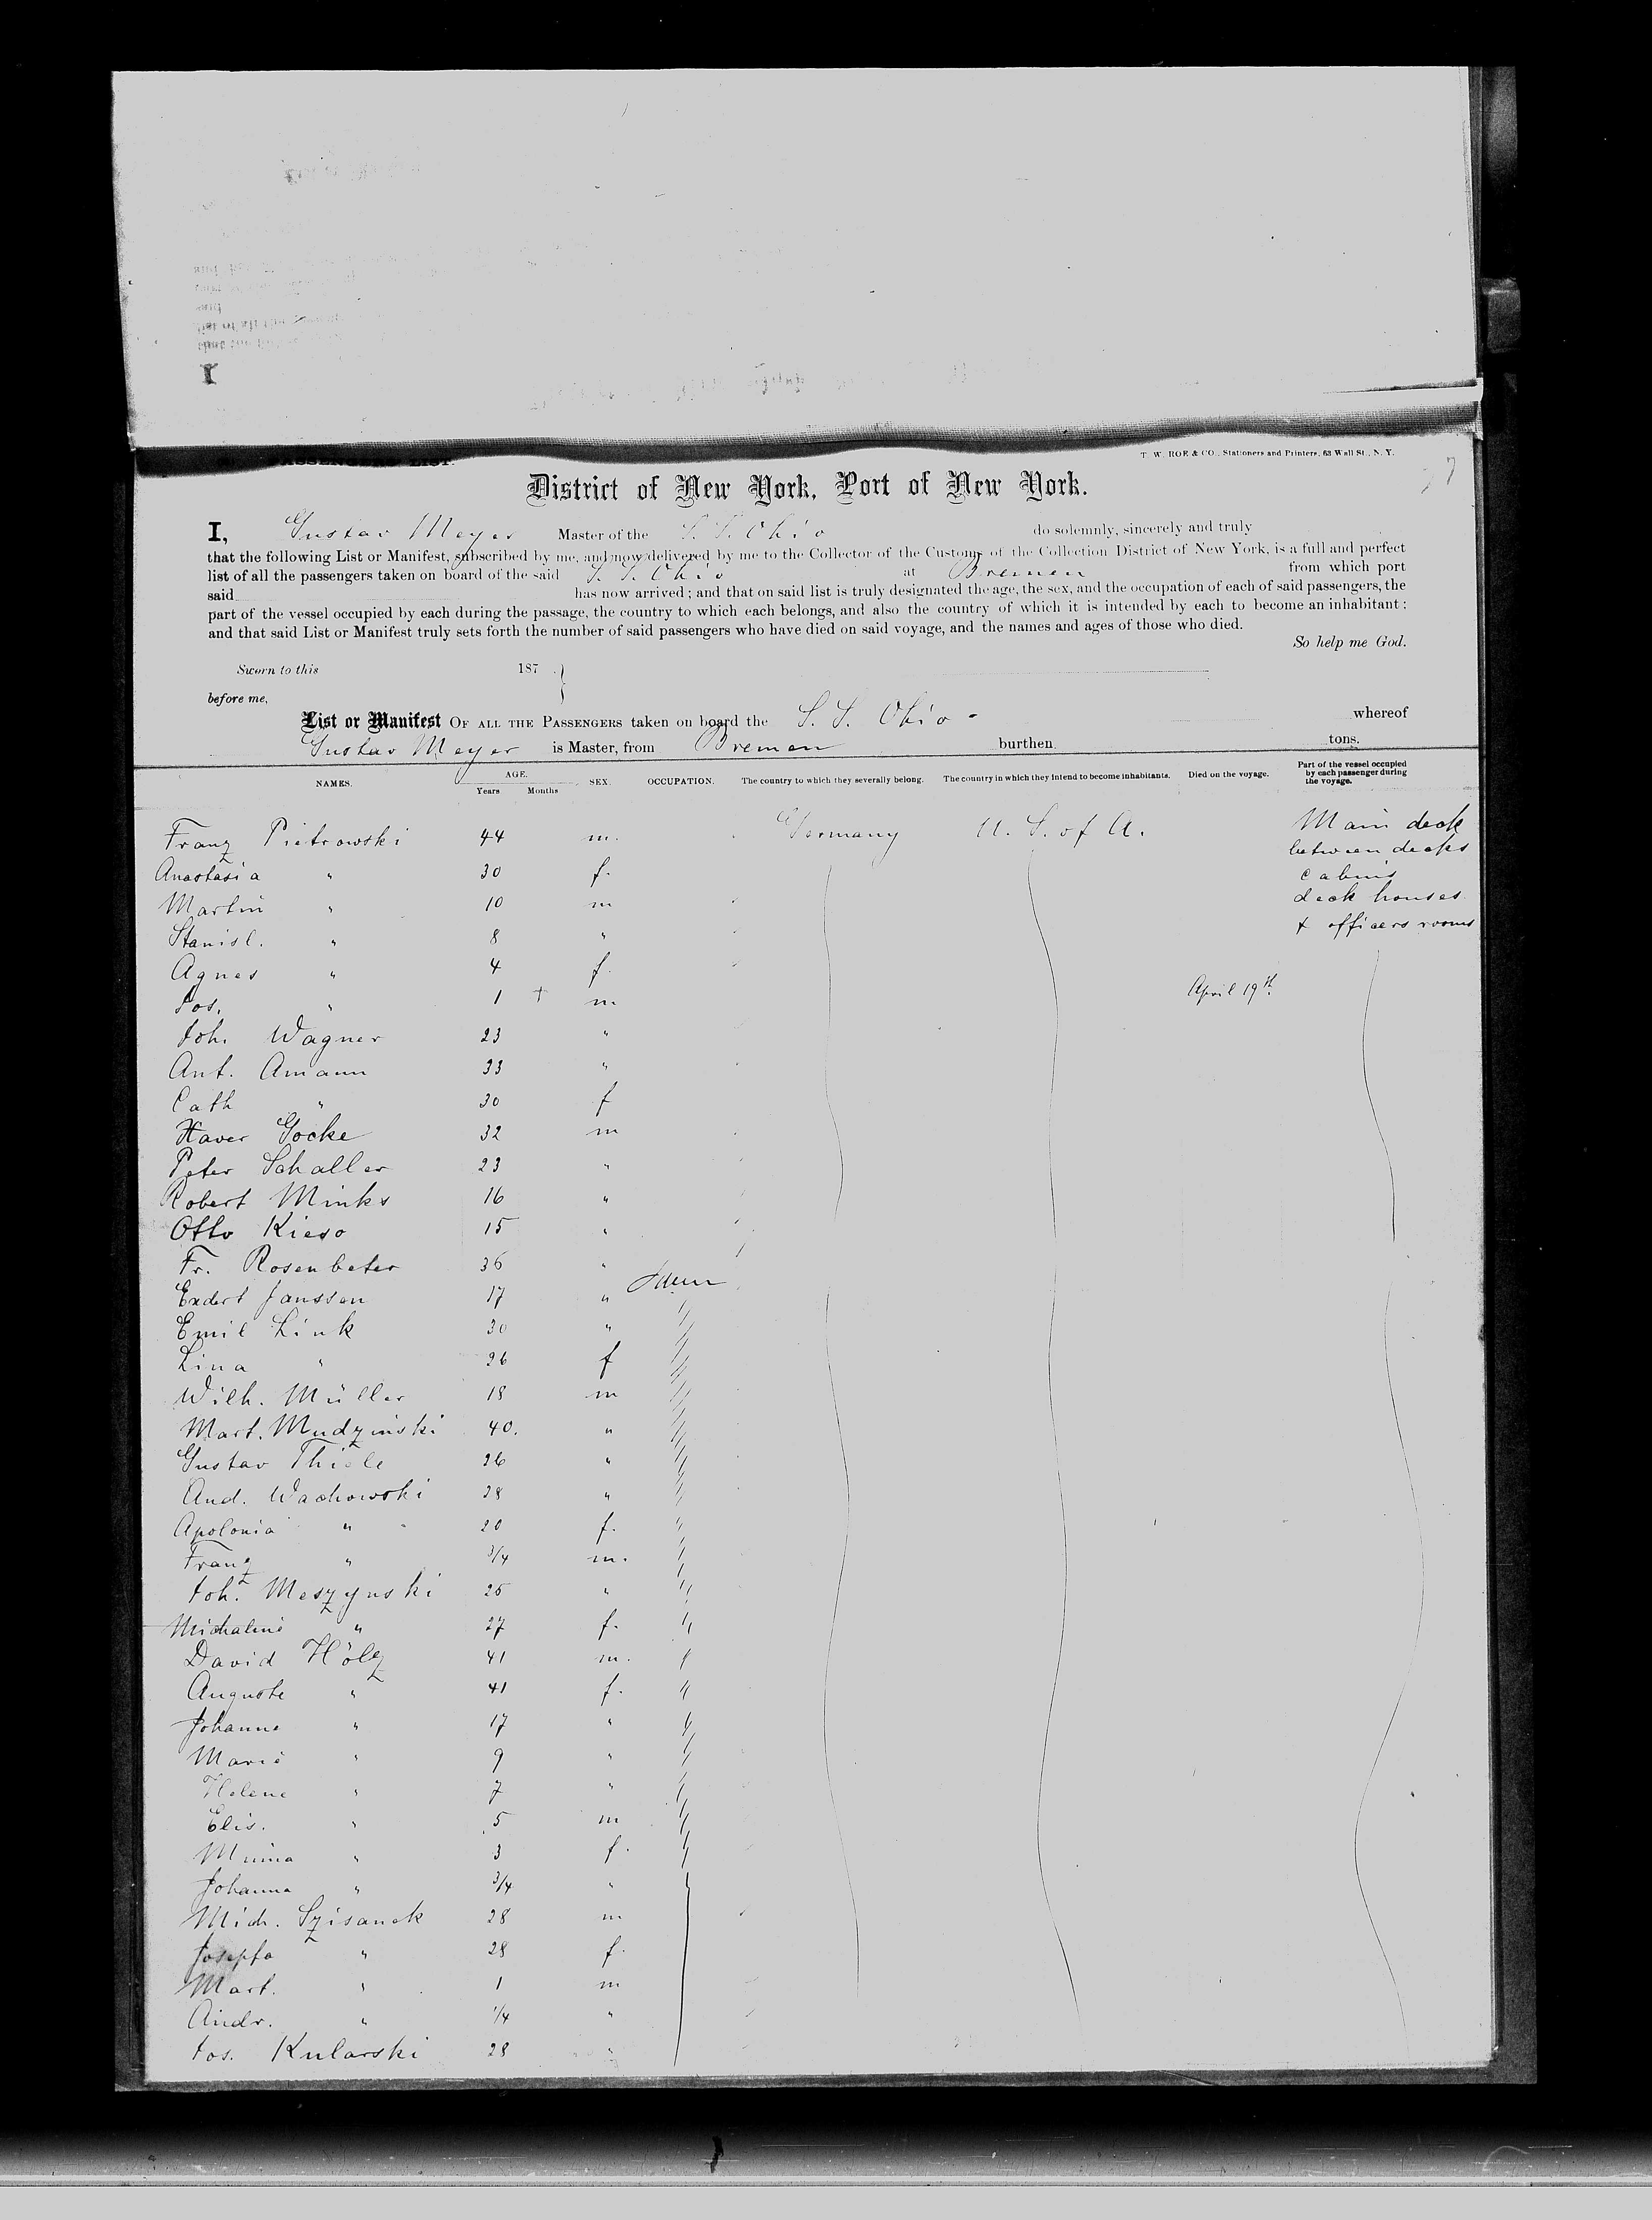 PASSENGERS LIST.
T. W. ROE & CO., Stationers and Printers, 63 Wall St., N. Y.
District of New York, Port of New York.
I, Gustav Meyer Master of the S. S. Ohio do solemnly, sincerely and truly
that the following List or Manifest, subscribed by me, and now delivered by me to the Collector of the Customs of the Collection District of New York, is a full and perfect
list of all the passengers taken on board of the said S. S. Ohio at Bremen from which port
said has now arrived; and that on said list is truly designated the age, the sex, and the occupation of each of said passengers, the
part of the vessel occupied by each during the passage, the country to which each belongs, and also the country of which it is intended by each to become an inhabitant;
and that said List or Manifest truly sets forth the number of said passengers who have died on said voyage, and the names and ages of those who died.
So help me God.
Sworn to this 187
before me,
List or Manifest OF ALL THE PASSENGERS taken on board the S. S. Ohio - whereof
Gustav Meyer is Master, from Bremen burthen tons.
NAMES. AGE. Years Months SEX. OCCUPATION. The country to which they severally belong. The country in which they intend to become inhabitants. Died on the voyage. Part of the vessel occupied by each passenger during the voyage.
Franz Pietrowski 44 m. Germany U. S. of A. Main deck
between decks
Anastasia " 30 f. cabins
Martin " 10 m deck houses
Stanisl. " 8 " & officers rooms
Agnes " 4 f.
Jos. " 1 + m April 19th
Joh. Wagner 23 "
Ant. Amann 33 "
Cath " 30 f
Xaver Göcke 32 m
Peter Schaller 23 "
Robert Minks 16 "
Otto Kieso 15 "
Fr. Rosenbeter 36 "
Exdert Janssen 17 "
Emil Link 30 "
Lina " 26 f
Wilh. Müller 18 m
Mart. Mudzinski 40. "
Gustav Thiele 26 "
And. Wachowski 28 "
Apolonia " 20 f.
Franz " 3/4 m.
Joh. Meszynski 25 "
Michaline " 27 f.
David Hölz 41 m.
Auguste " 41 f.
Johanne " 17 "
Marie " 9 "
Helene " 7 "
Elis. " 5 m
Minna " 3 f.
Johanna " 3/4 "
Mich. Szisanek 28 m
Josepha " 28 f.
Mart. " 1 m
Andr. " 1/4 "
Jos. Kularski 28 "